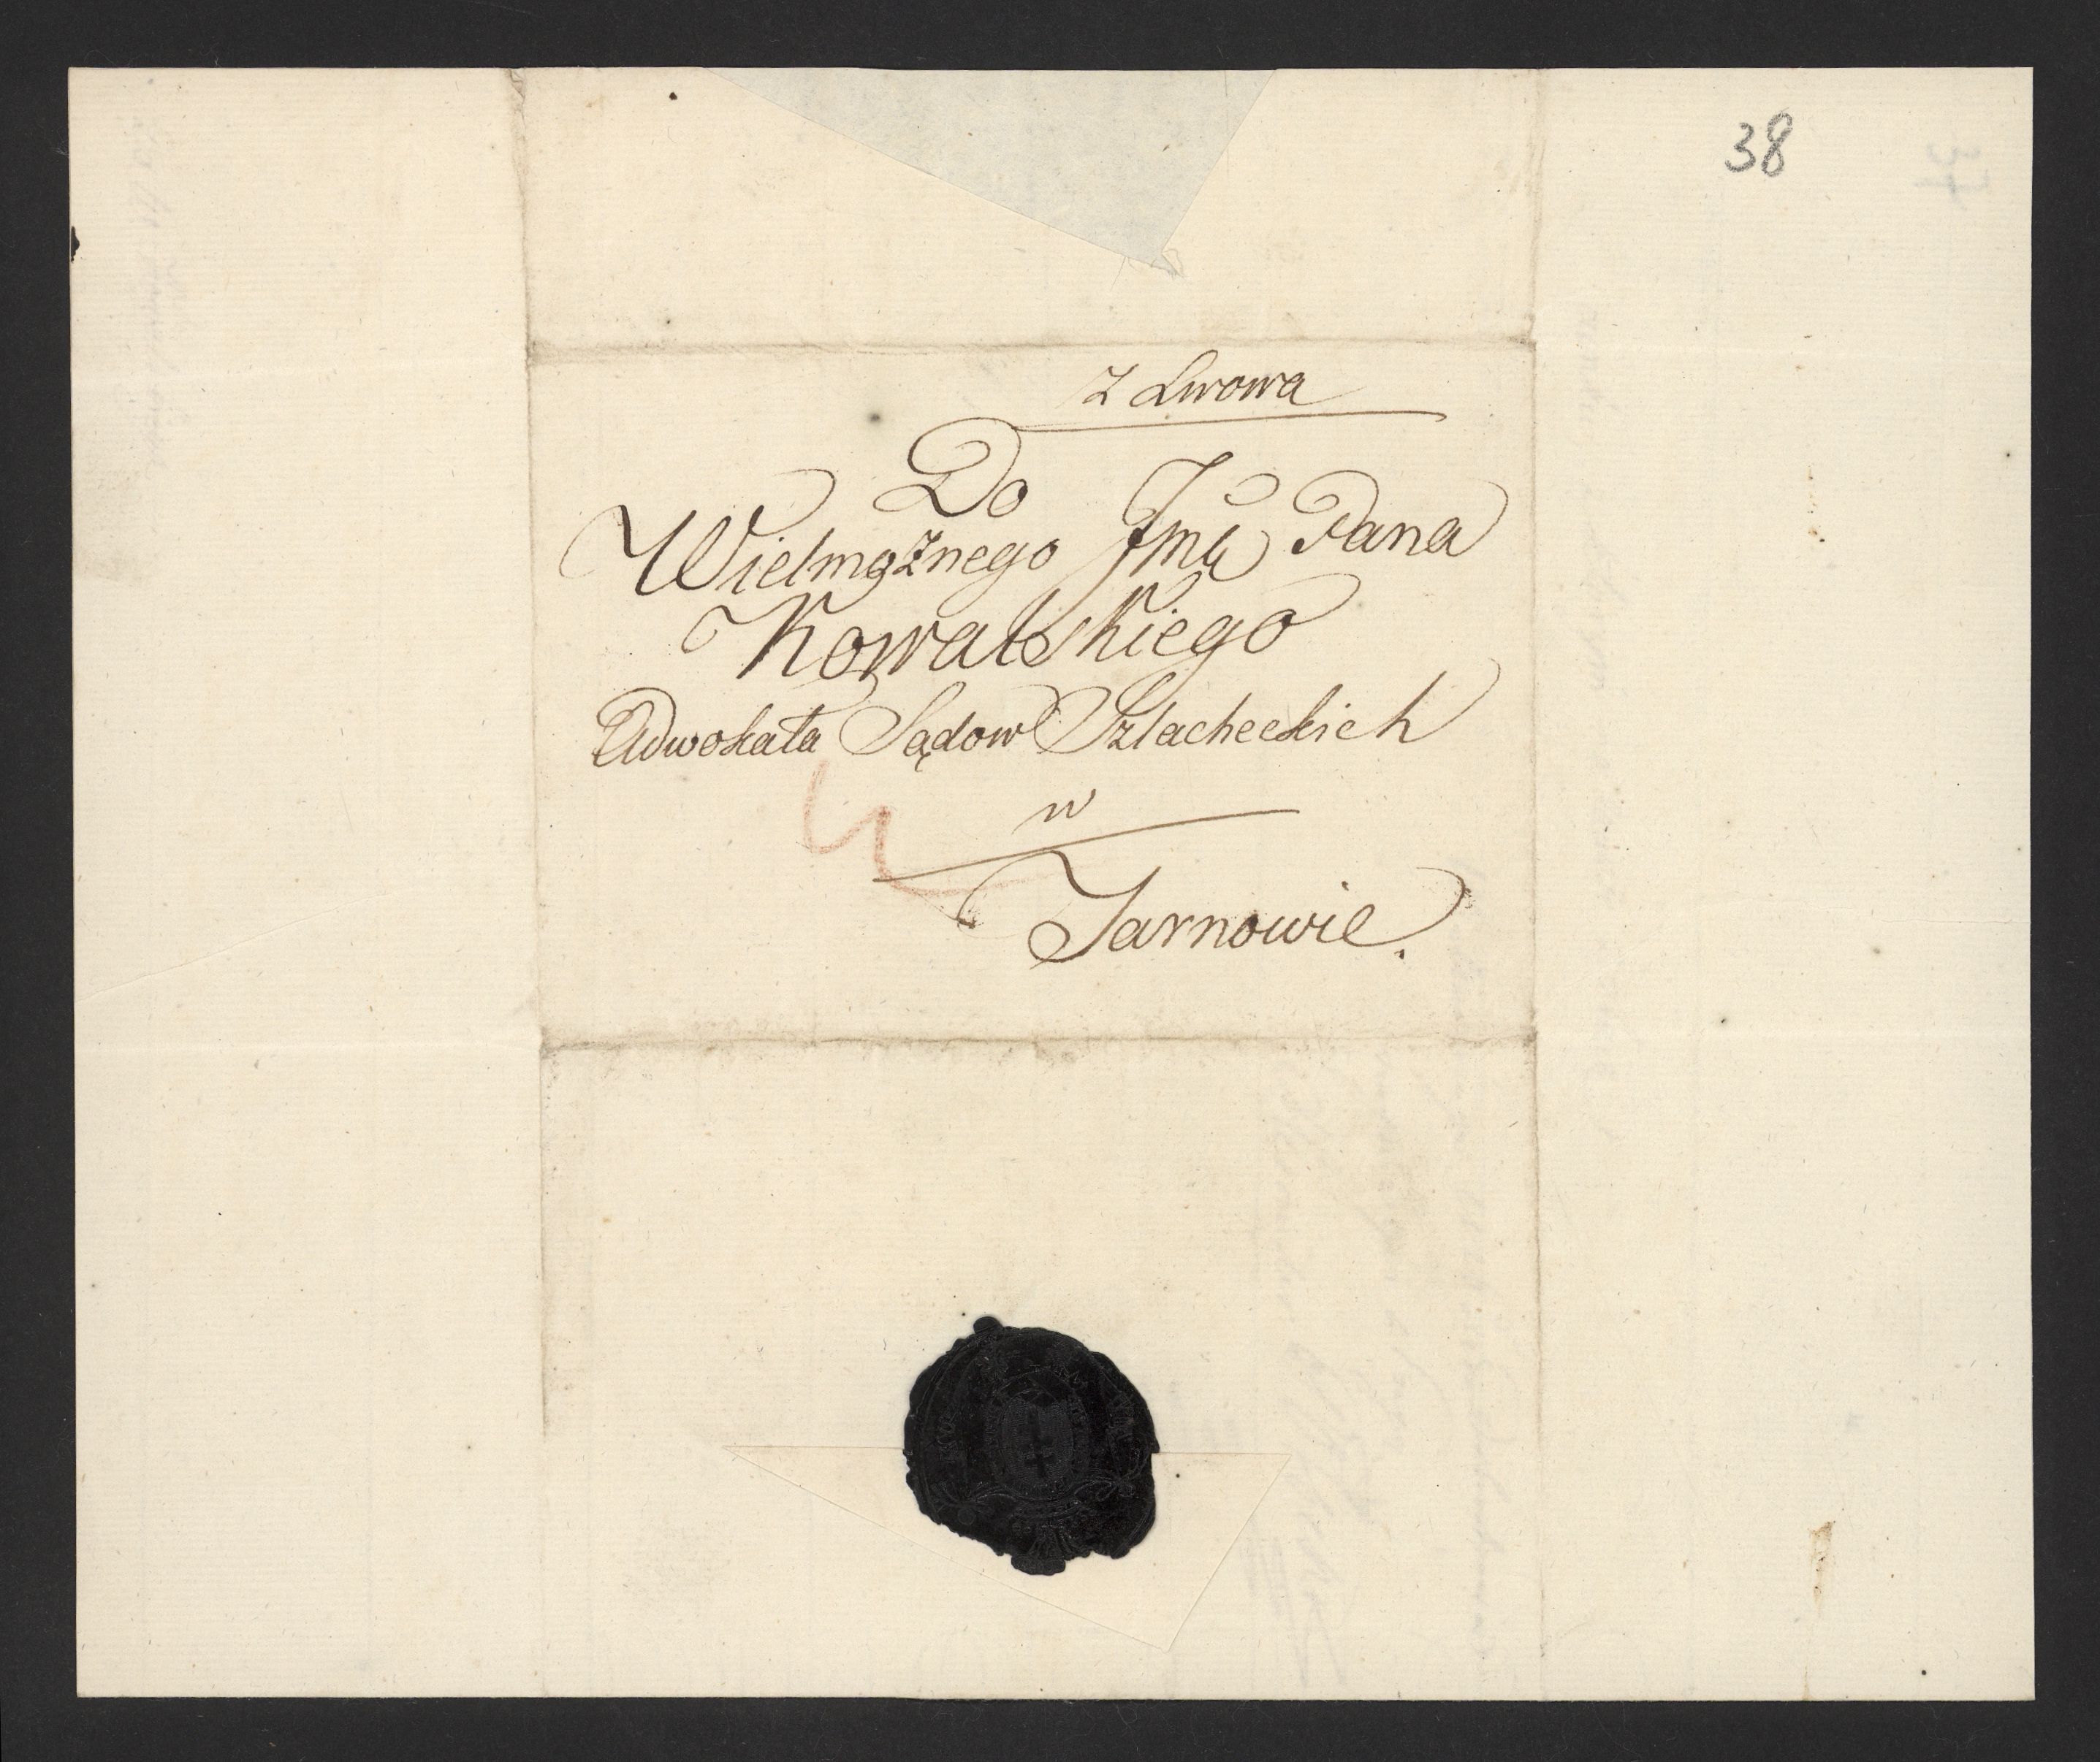 38
z Lwowa
Do
Wielmożnego Jmć Pana
Kowalskiego
Adwokata Sądow Szlacheckich
w
Tarnowie.